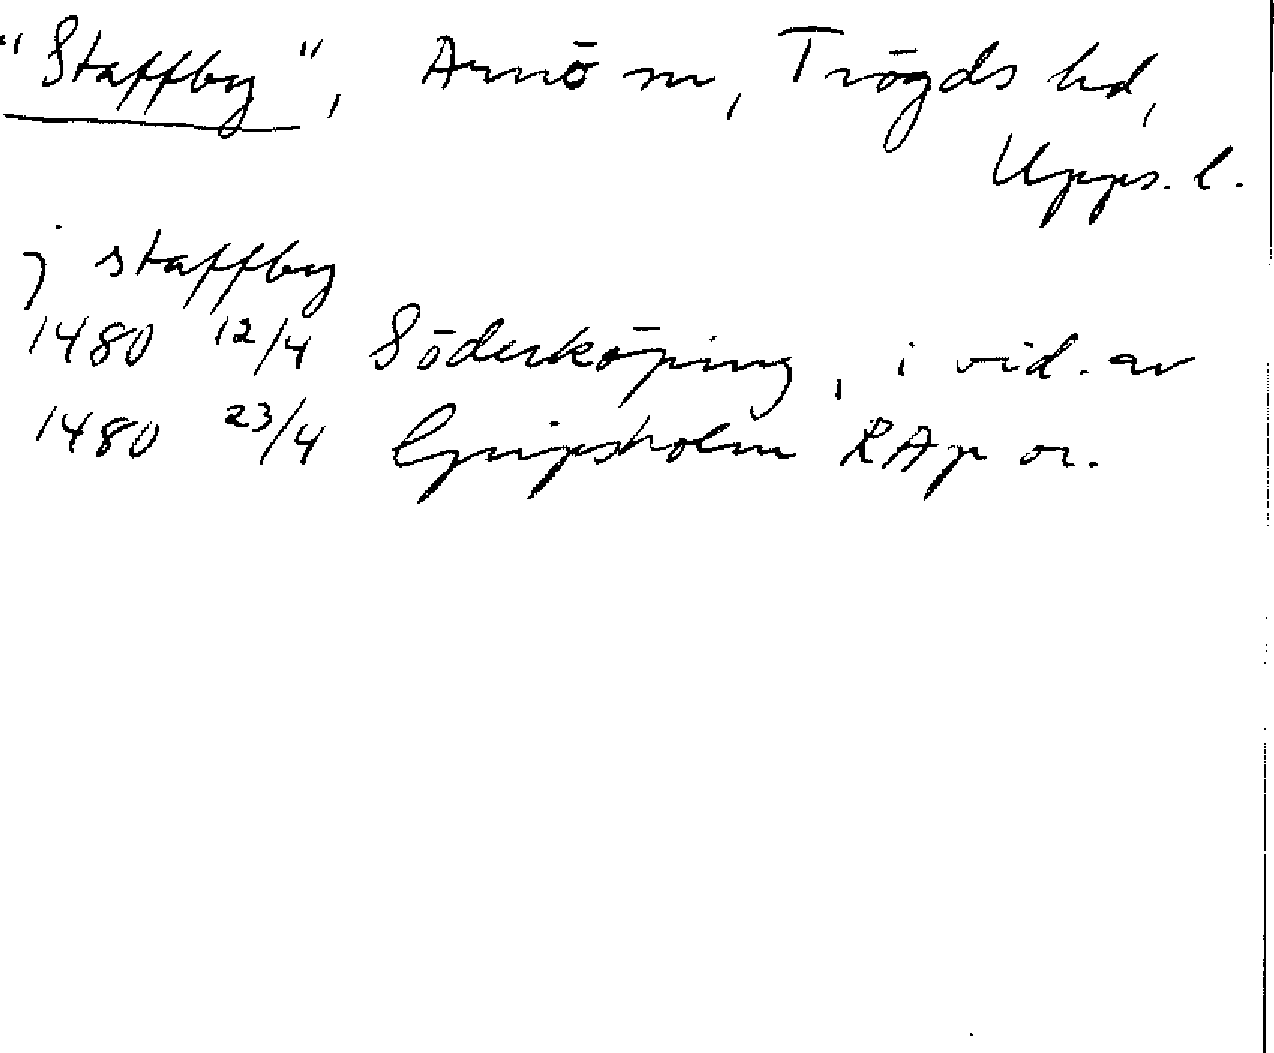 "Staffby", Arnö sn, Trögds hd,
Upps. l.
j staffby
1480 12/4 Söderköping, i vid. av
1480 23/4 Gripsholm RAp or.